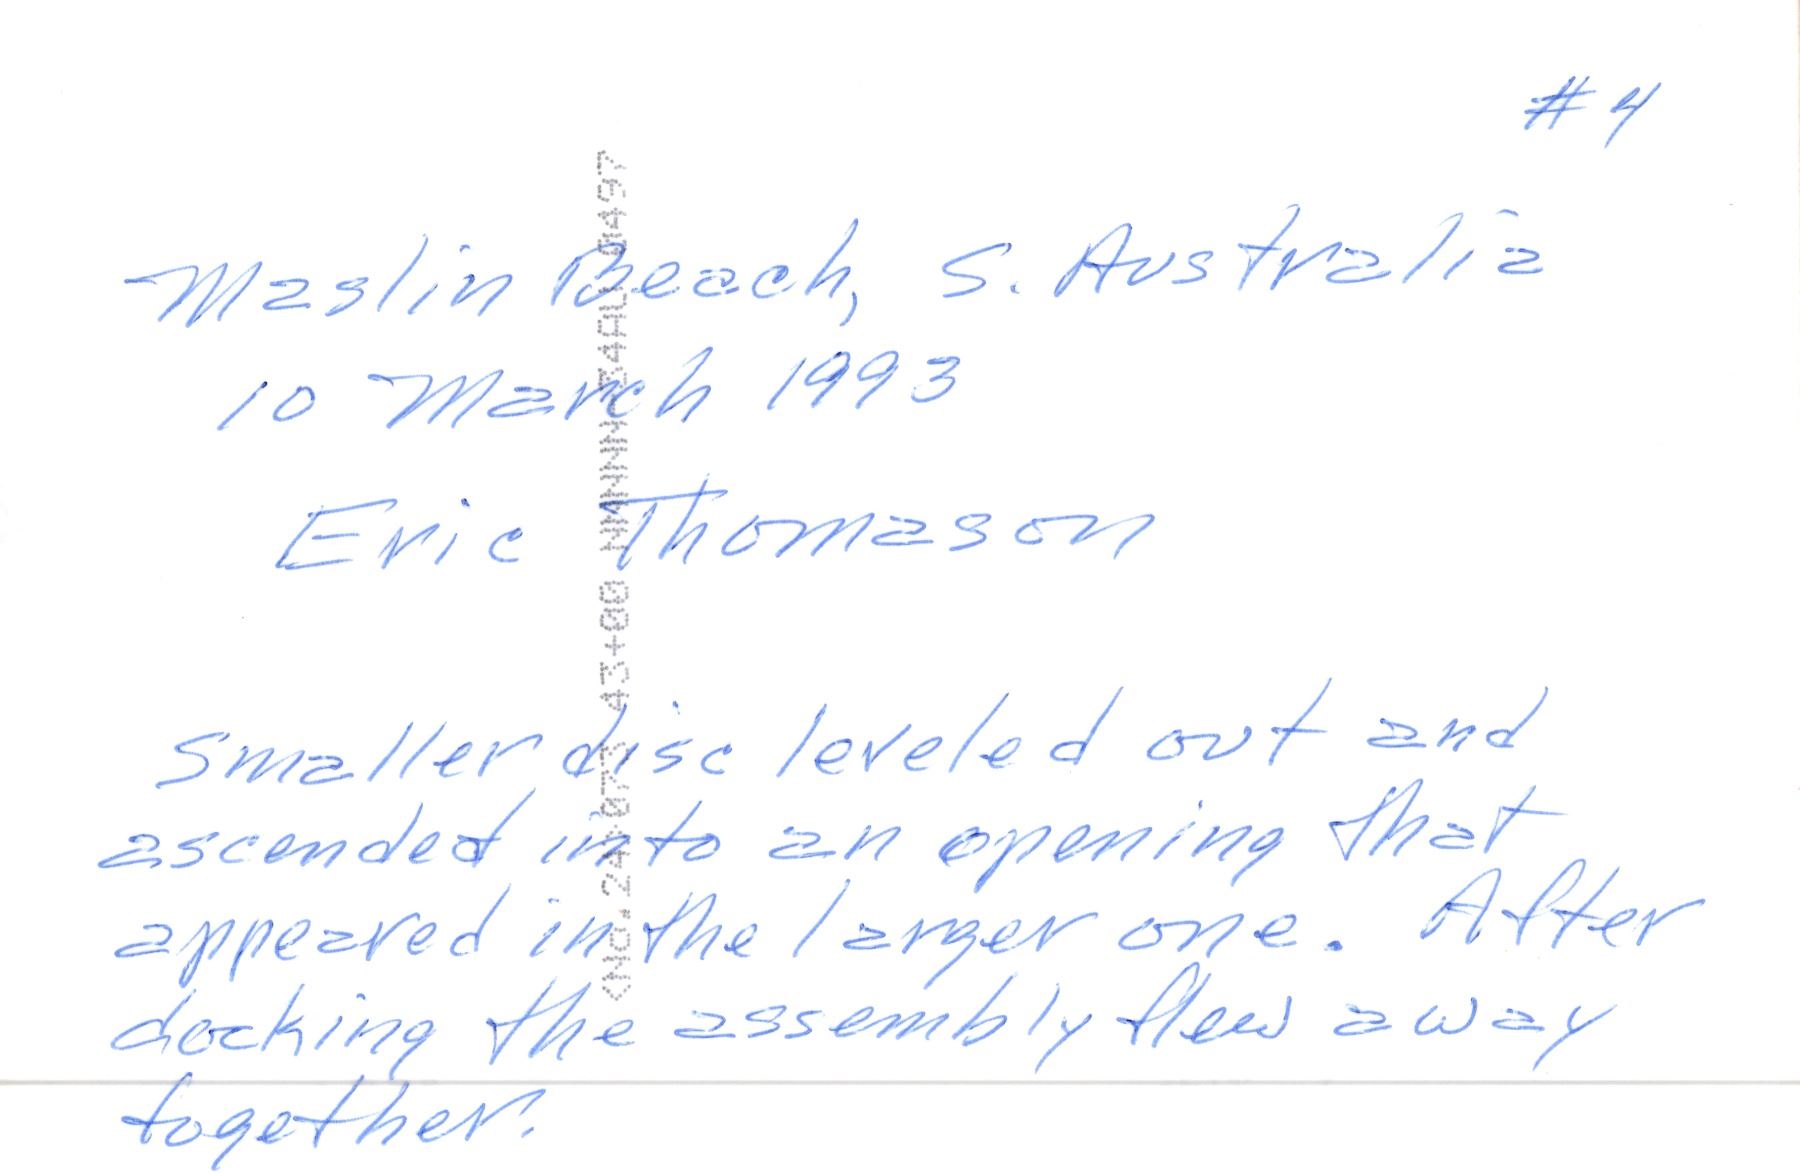 #4
Maslin Beach, S. Australia
10 March 1993
Eric Thomason
Smaller disc leveled out and
ascended into an opening that
appeared in the larger one. After
docking the assembly flew away
together.